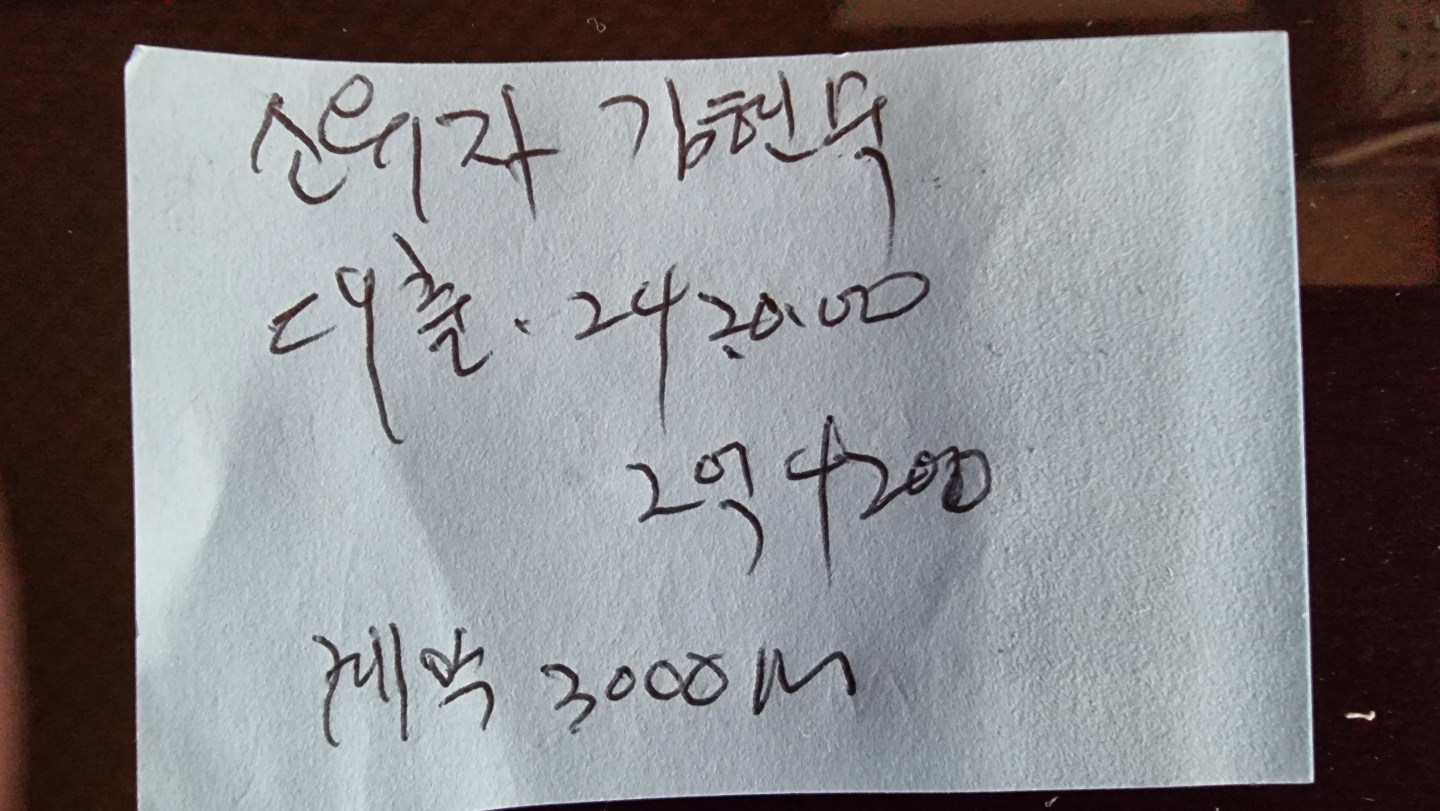 순위자 김현묵
대출. 2420.00
2억 4200
계약 3000M